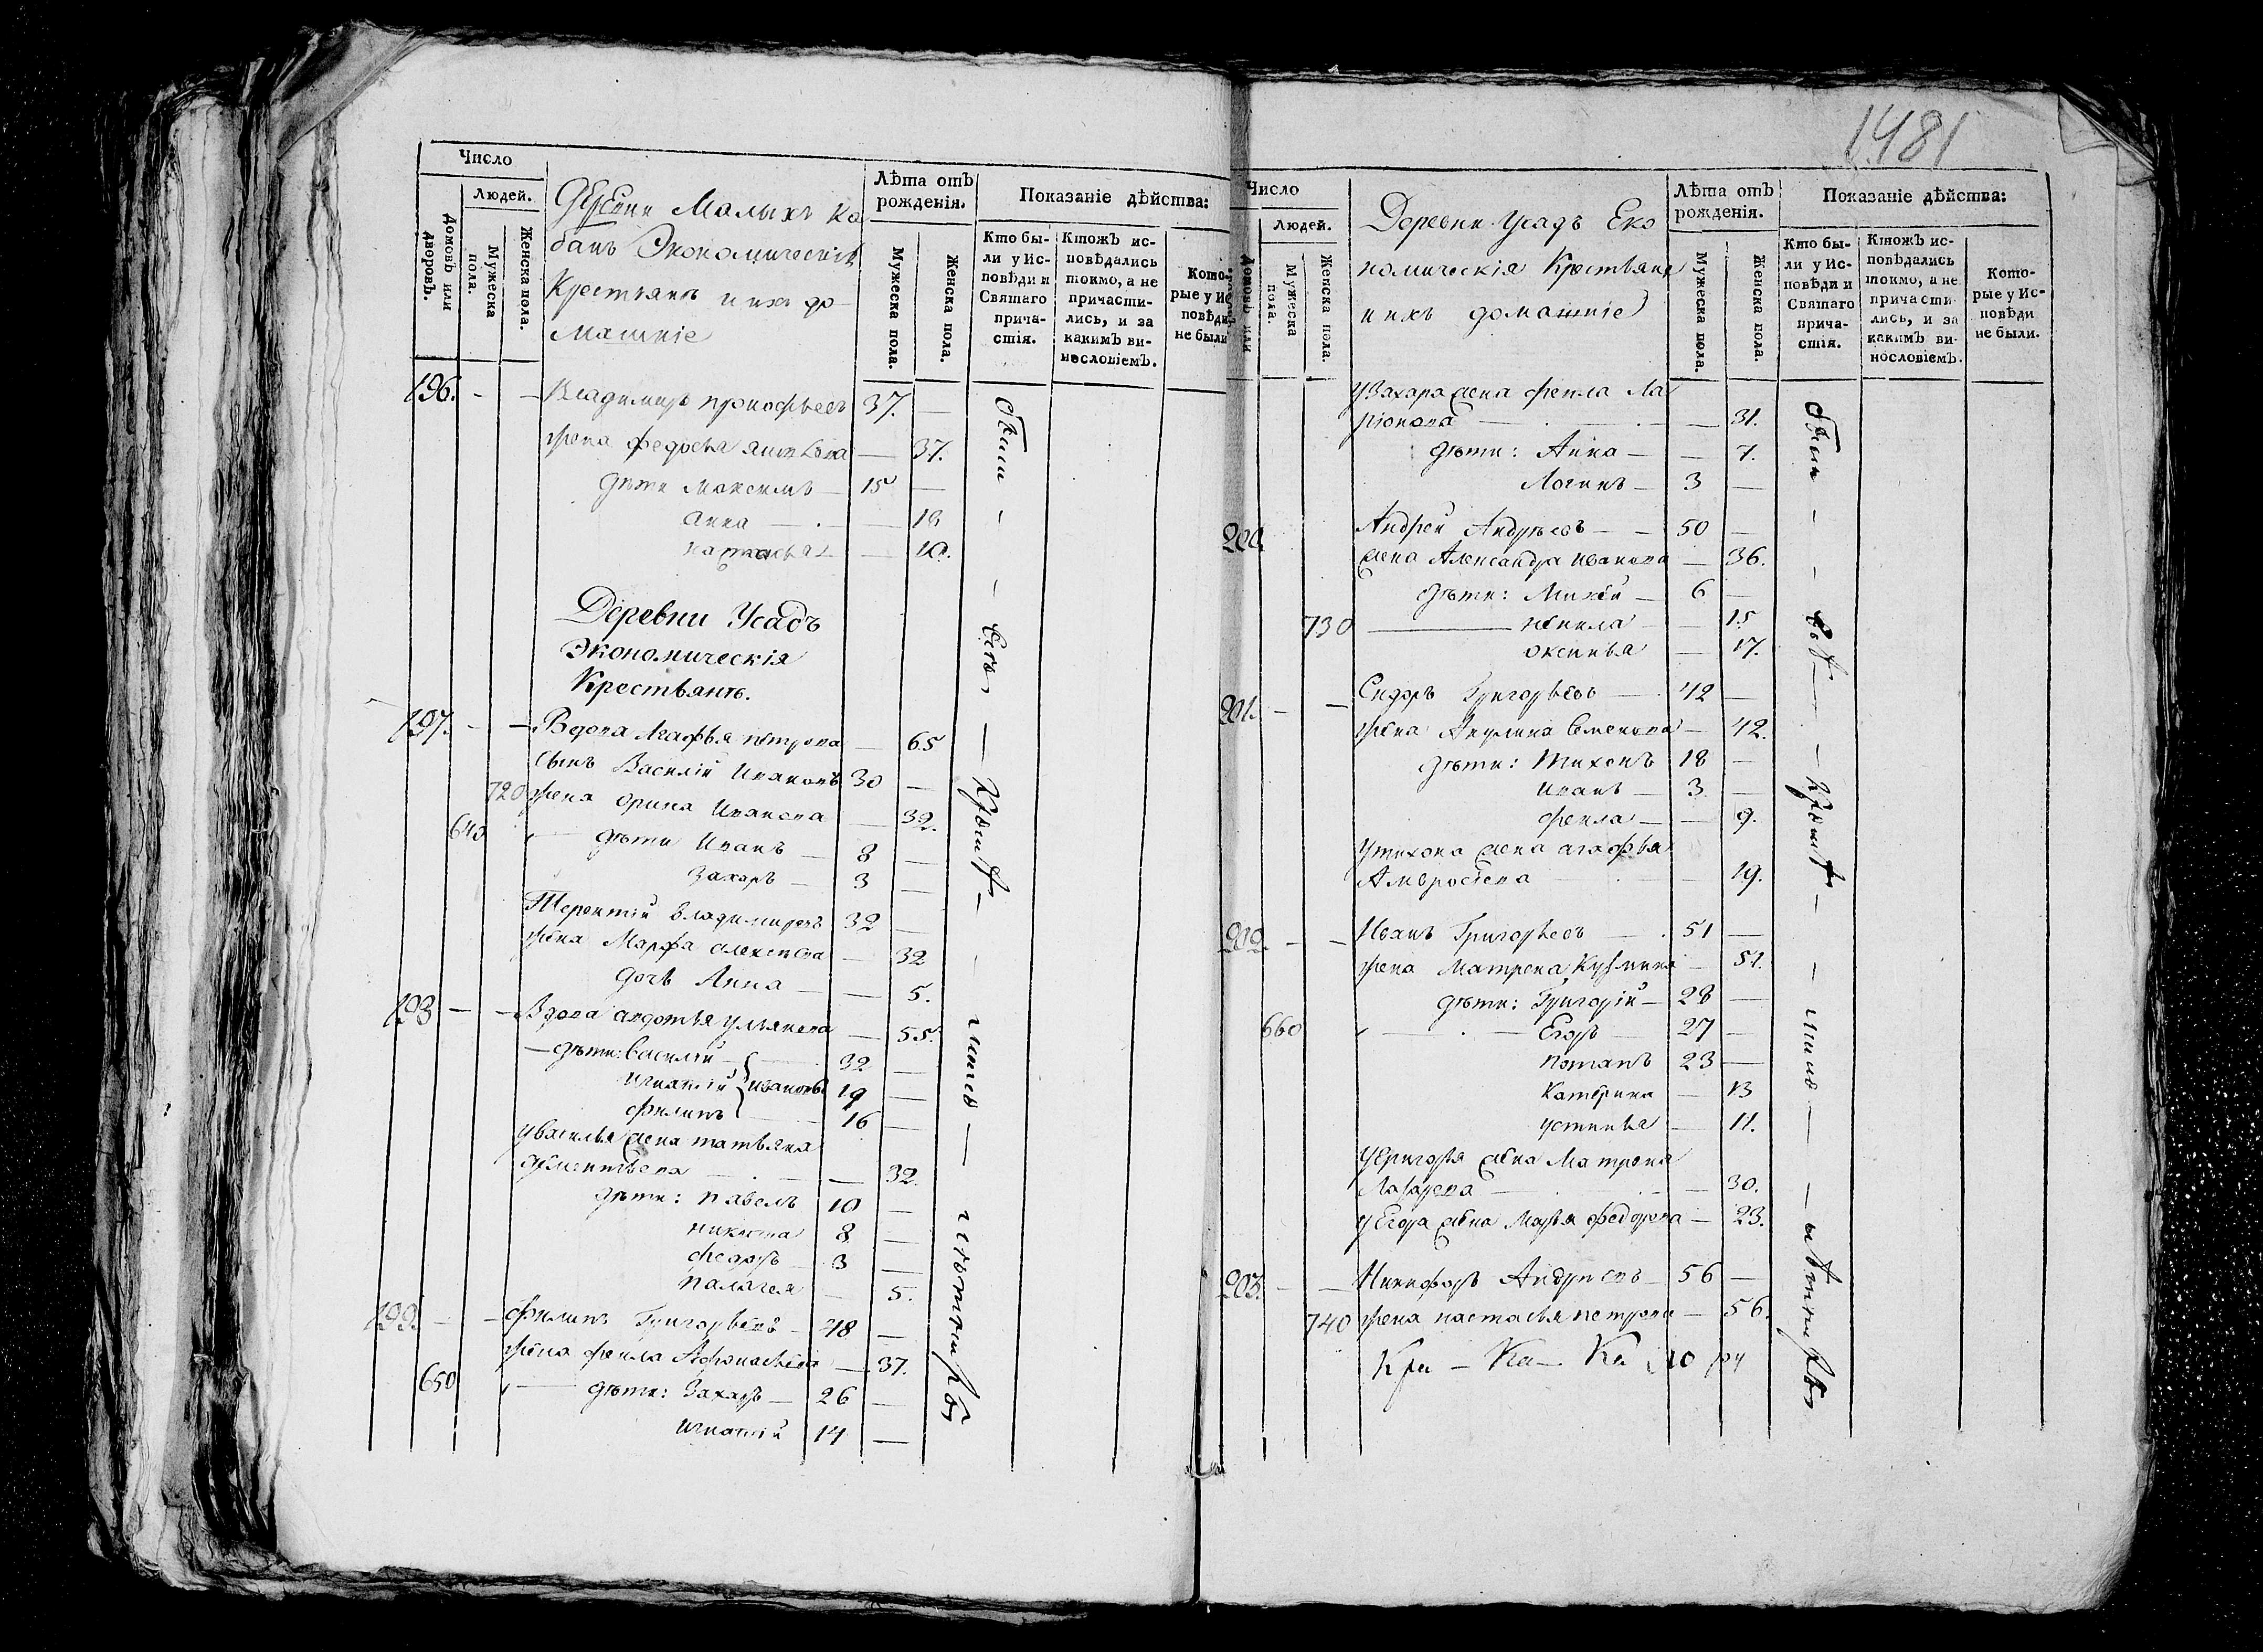 1481
Число
Людей.
Домовъ или дворовъ.
Мужеска пола.
Женска пола.
Деревни Малыхъ Ка
банъ Экономическія
Крестьянѣ и ихъ до
машніе
Лѣта отъ рожденія.
Мужеска пола.
Женска пола.
Показаніе дѣйства:
Кто бы-
ли у Ис-
повѣди и
Святаго
прича-
стія.
Ктожъ ис-
повѣдались
токмо, а не
причасти-
лись, и за
какимъ ви-
нословіемъ.
Кото-
рые у Ис-
повѣди
не были
196. - - Владимиръ прокофьевъ 37. —
жена федосья — 37.
дѣти Максимъ — 15 —
анна — —
настасья — 10.
Деревни Усадъ
Экономическія
Крестьянѣ.
197. - - Вдова Агафья петрова — 65
сынъ Василій Ивановъ 30 —
720 жена орина Иванова — 32.
640 дѣти Иванъ — 8 —
Захаръ — 3 —
Терентій владимировъ 32 —
жена Марфа алексѣева — 32
дочь Анна — — 5.
198 - - Вдова авдотья ульянова — 55.
— дѣти: Василій — 32 —
игнатій ивановы 19 —
филипъ 16 —
у василья жена татьяна
— 32.
дѣти: павелъ 10 —
никита 8 —
федоръ 3 —
палагея — 5.
199. - - филипъ Григорьевъ - 48 —
жена фекла Афонасьева — 37.
650 дѣти: Захаръ — 26 —
игнатій 14 —
были - - всѣ, — —
Число
Людей.
Домовъ или
Мужеска пола.
Женска пола.
Деревни Усадъ Еко
номическія Крестьяне
и ихъ домашніе
Лѣта отъ рожденія.
Мужеска пола.
Женска пола.
Показаніе дѣйства:
Кто бы-
ли у Ис-
повѣди и
Святаго
прича-
стія.
Ктожъ ис-
повѣдались
токмо, а не
причасти-
лись, и за
какимъ ви-
нословіемъ.
Кото-
рые у Ис-
повѣди
не были.
у Захара жена фекла Ла
ріонова — — 31.
дѣти: Анна — — 7.
Логинъ — 3 —
200. Андрей Андрѣевъ — 50 —
жена Александра иванова — 36.
дѣти: Михѣй — 6 —
730 — 15
оксинья — 17.
201. - - Сидоръ Григорьевъ — 42 —
жена Акулина Семенова — 42.
дѣти: Тихонъ 18 —
иванъ — 3 —
фекла — — 9.
у тихона жена агафья
Амвросіева — 19.
202. - - Иванъ Григорьевъ — 51 —
жена Матрена Кузмина — 51.
дѣти: Григорій — 28 —
660 Егоръ 27 —
потапъ 23 —
Катерина — 13
устинья — 11.
у Григорья жена Матрена
Лазарева — — 30.
у Егора жена Марья федорова — 23.
203. - - Никифоръ Андрѣевъ — 56 —
740 жена настасья петрова — 56.
были - - всѣ — —